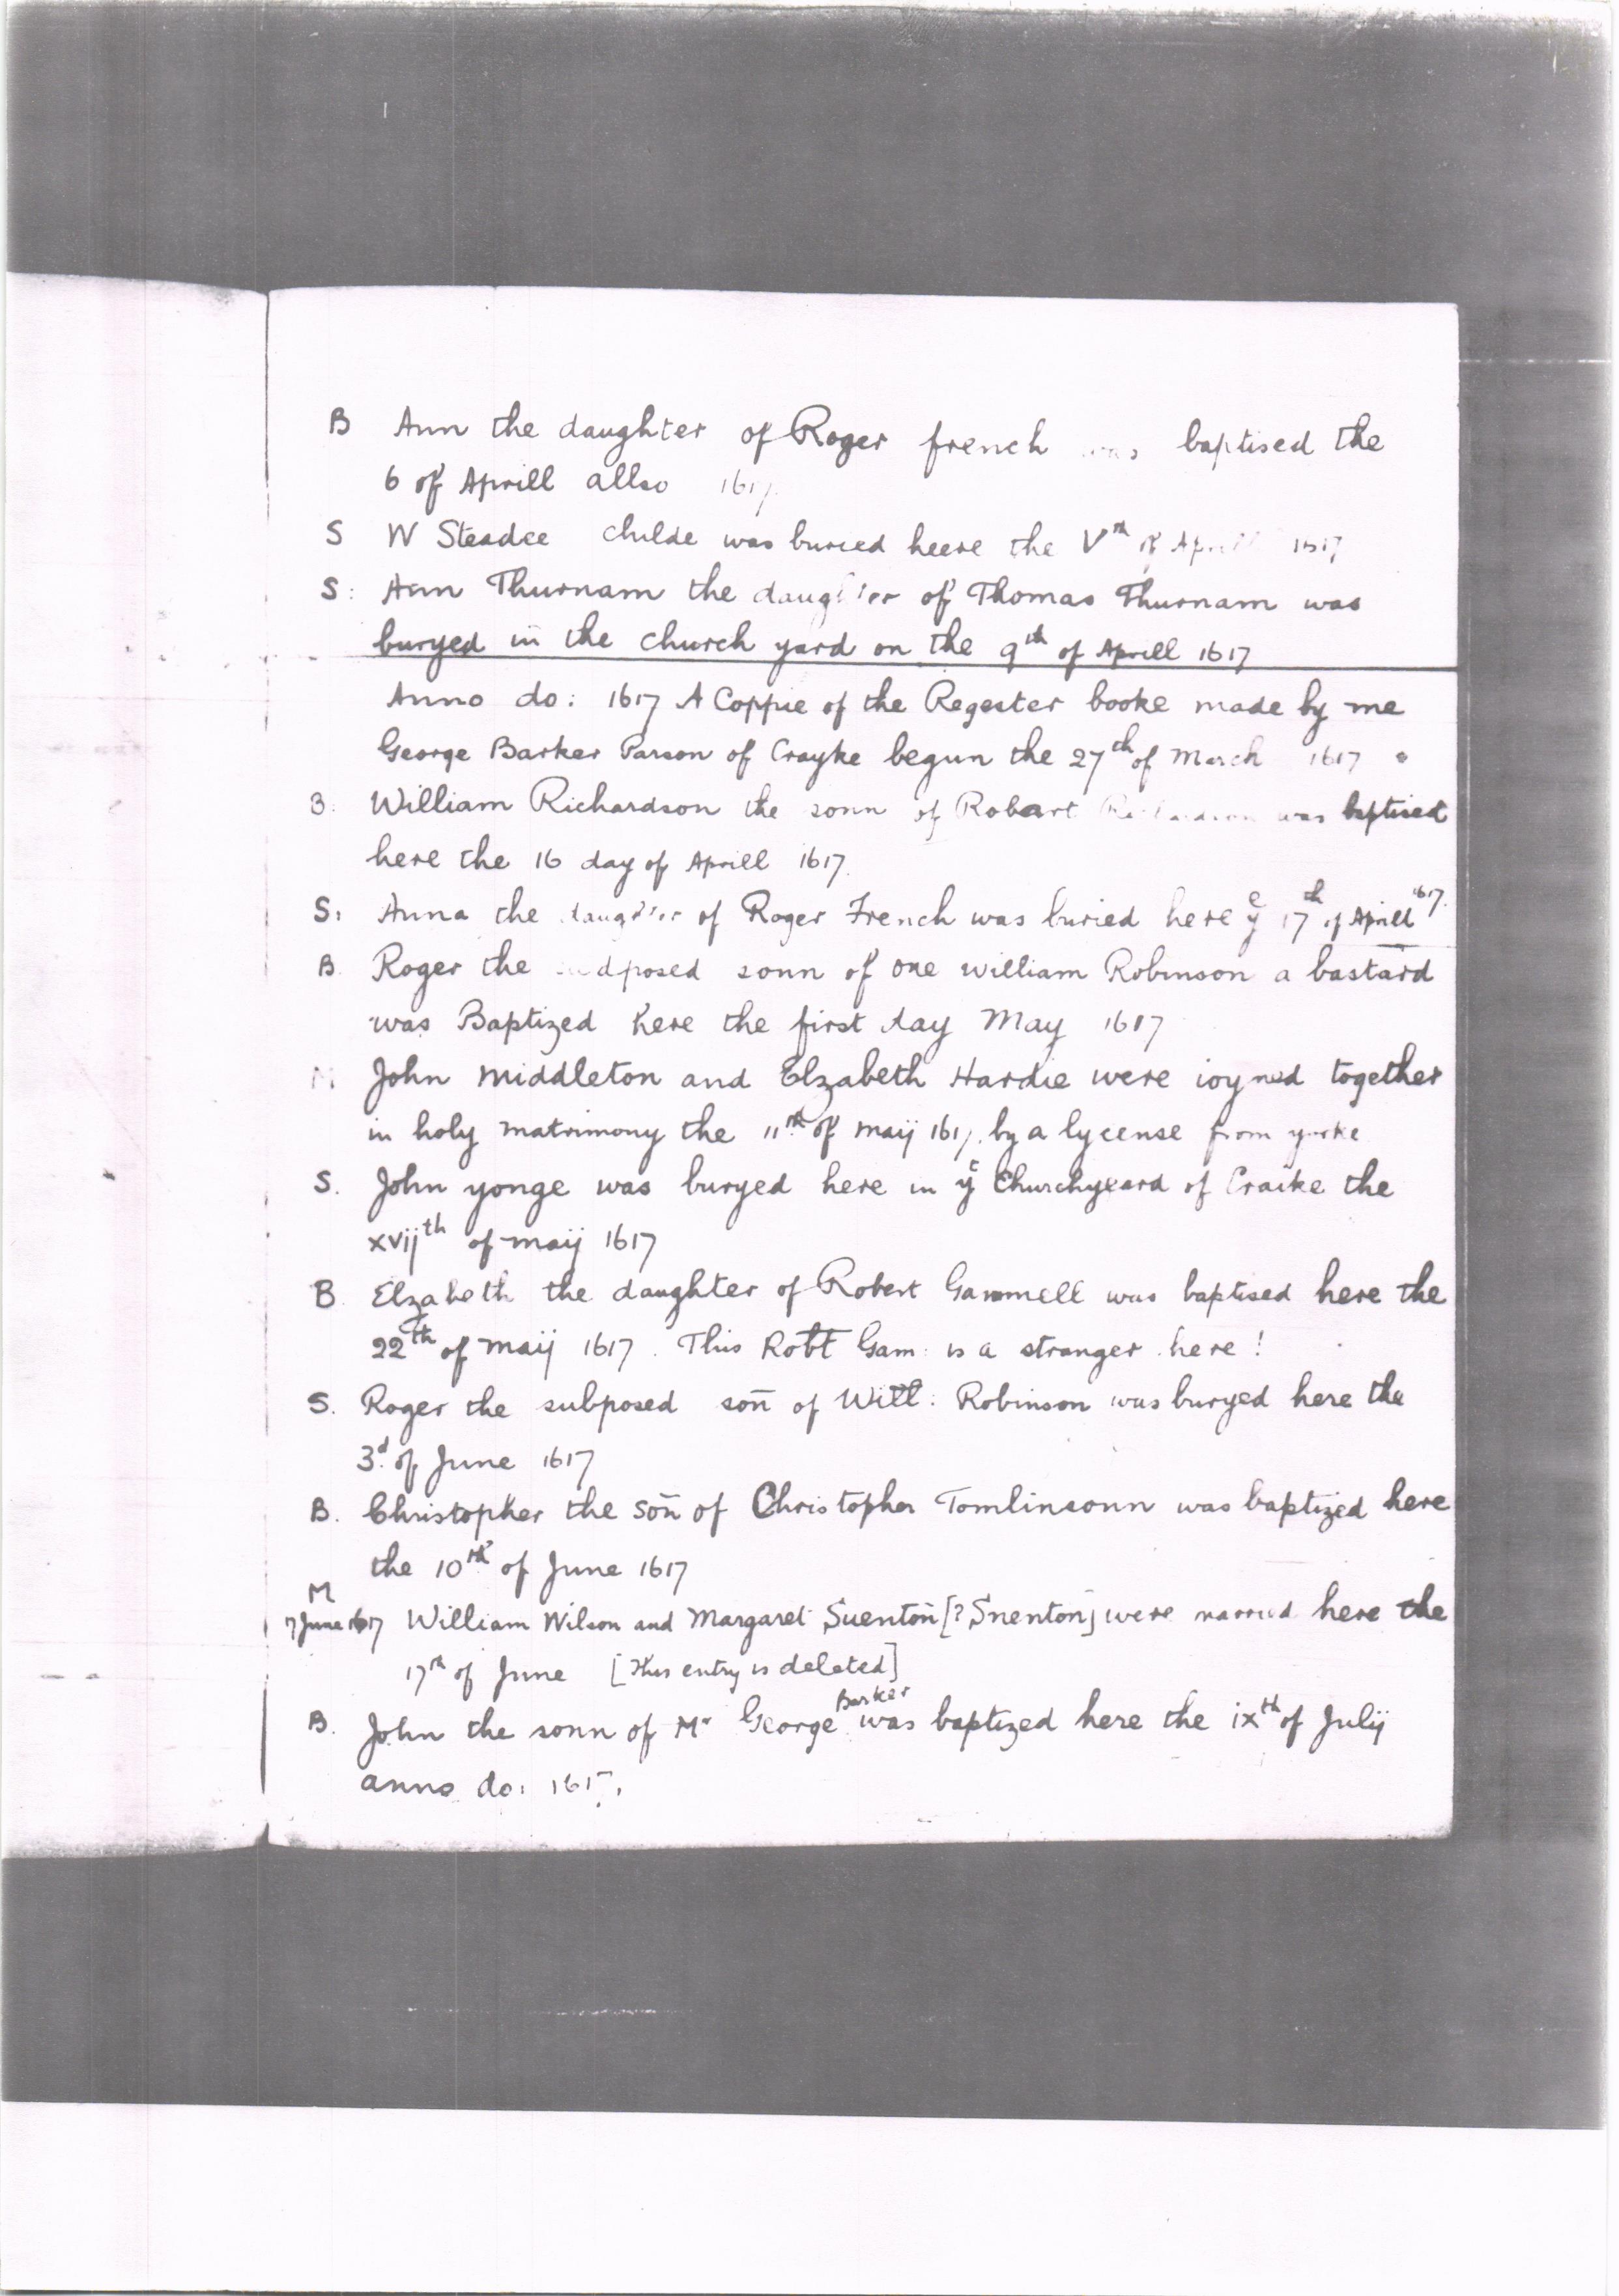 B Ann the daughter of Roger french was baptised the
6 of Aprill allso 1617
S W Steadee childe was buried heere the Vth of Aprill 1617
S: Ann Thurnam the daughter of Thomas Thurnam was
buryed in the church yard on the 9th of Aprill 1617
Anno do: 1617 A Coppie of the Regester booke made by me
George Barker Parson of Crayke begun the 27th of March 1617
B. William Richardson the sonn of Robart Richardson was baptised
here the 16 day of Aprill 1617.
S: Anna the daughter of Roger French was buried here ye 17th of Aprill 1617.
B. Roger the posed sonn of one william Robinson a bastard
was Baptized here the first day May 1617
M John Middleton and Elzabeth Hardie were ioyned together
in holy matrimony the 11th of maij 1617. by a lycense from yorke
S. John yonge was buryed here in ye Churchyeard of Craike the
xvijth of maij 1617
B. Elzabeth the daughter of Robert Gammell was baptised here the
22th of maij 1617. This Robt Gam: is a stranger here!
S. Roger the subposed son̄ of Will: Robinson was buryed here the
3d. of June 1617
B. Christopher the son̄ of Christopher Tomlinsonn was baptized here
the 10th of June 1617
M
17 June 1617 William Wilson and Margaret Suenton̄ [? Snenton] were married here the
17th of June [This entry is deleted]
B. John the sonn of Mr George Barker was baptized here the ixth of Julij
anno do: 1617.